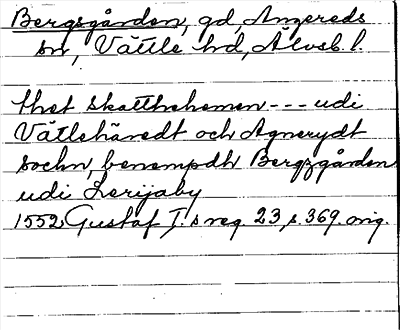 Bergsgården, gd, Angereds
sn, Vättle hd, Älvsb. l.
thet skatthehemen --- udi
Vätlehäredt och Agnerydt
sochn, benempdh Bergzgården
udi Lerijaby
1552 Gustaf I:s reg. 23, s. 369. orig.